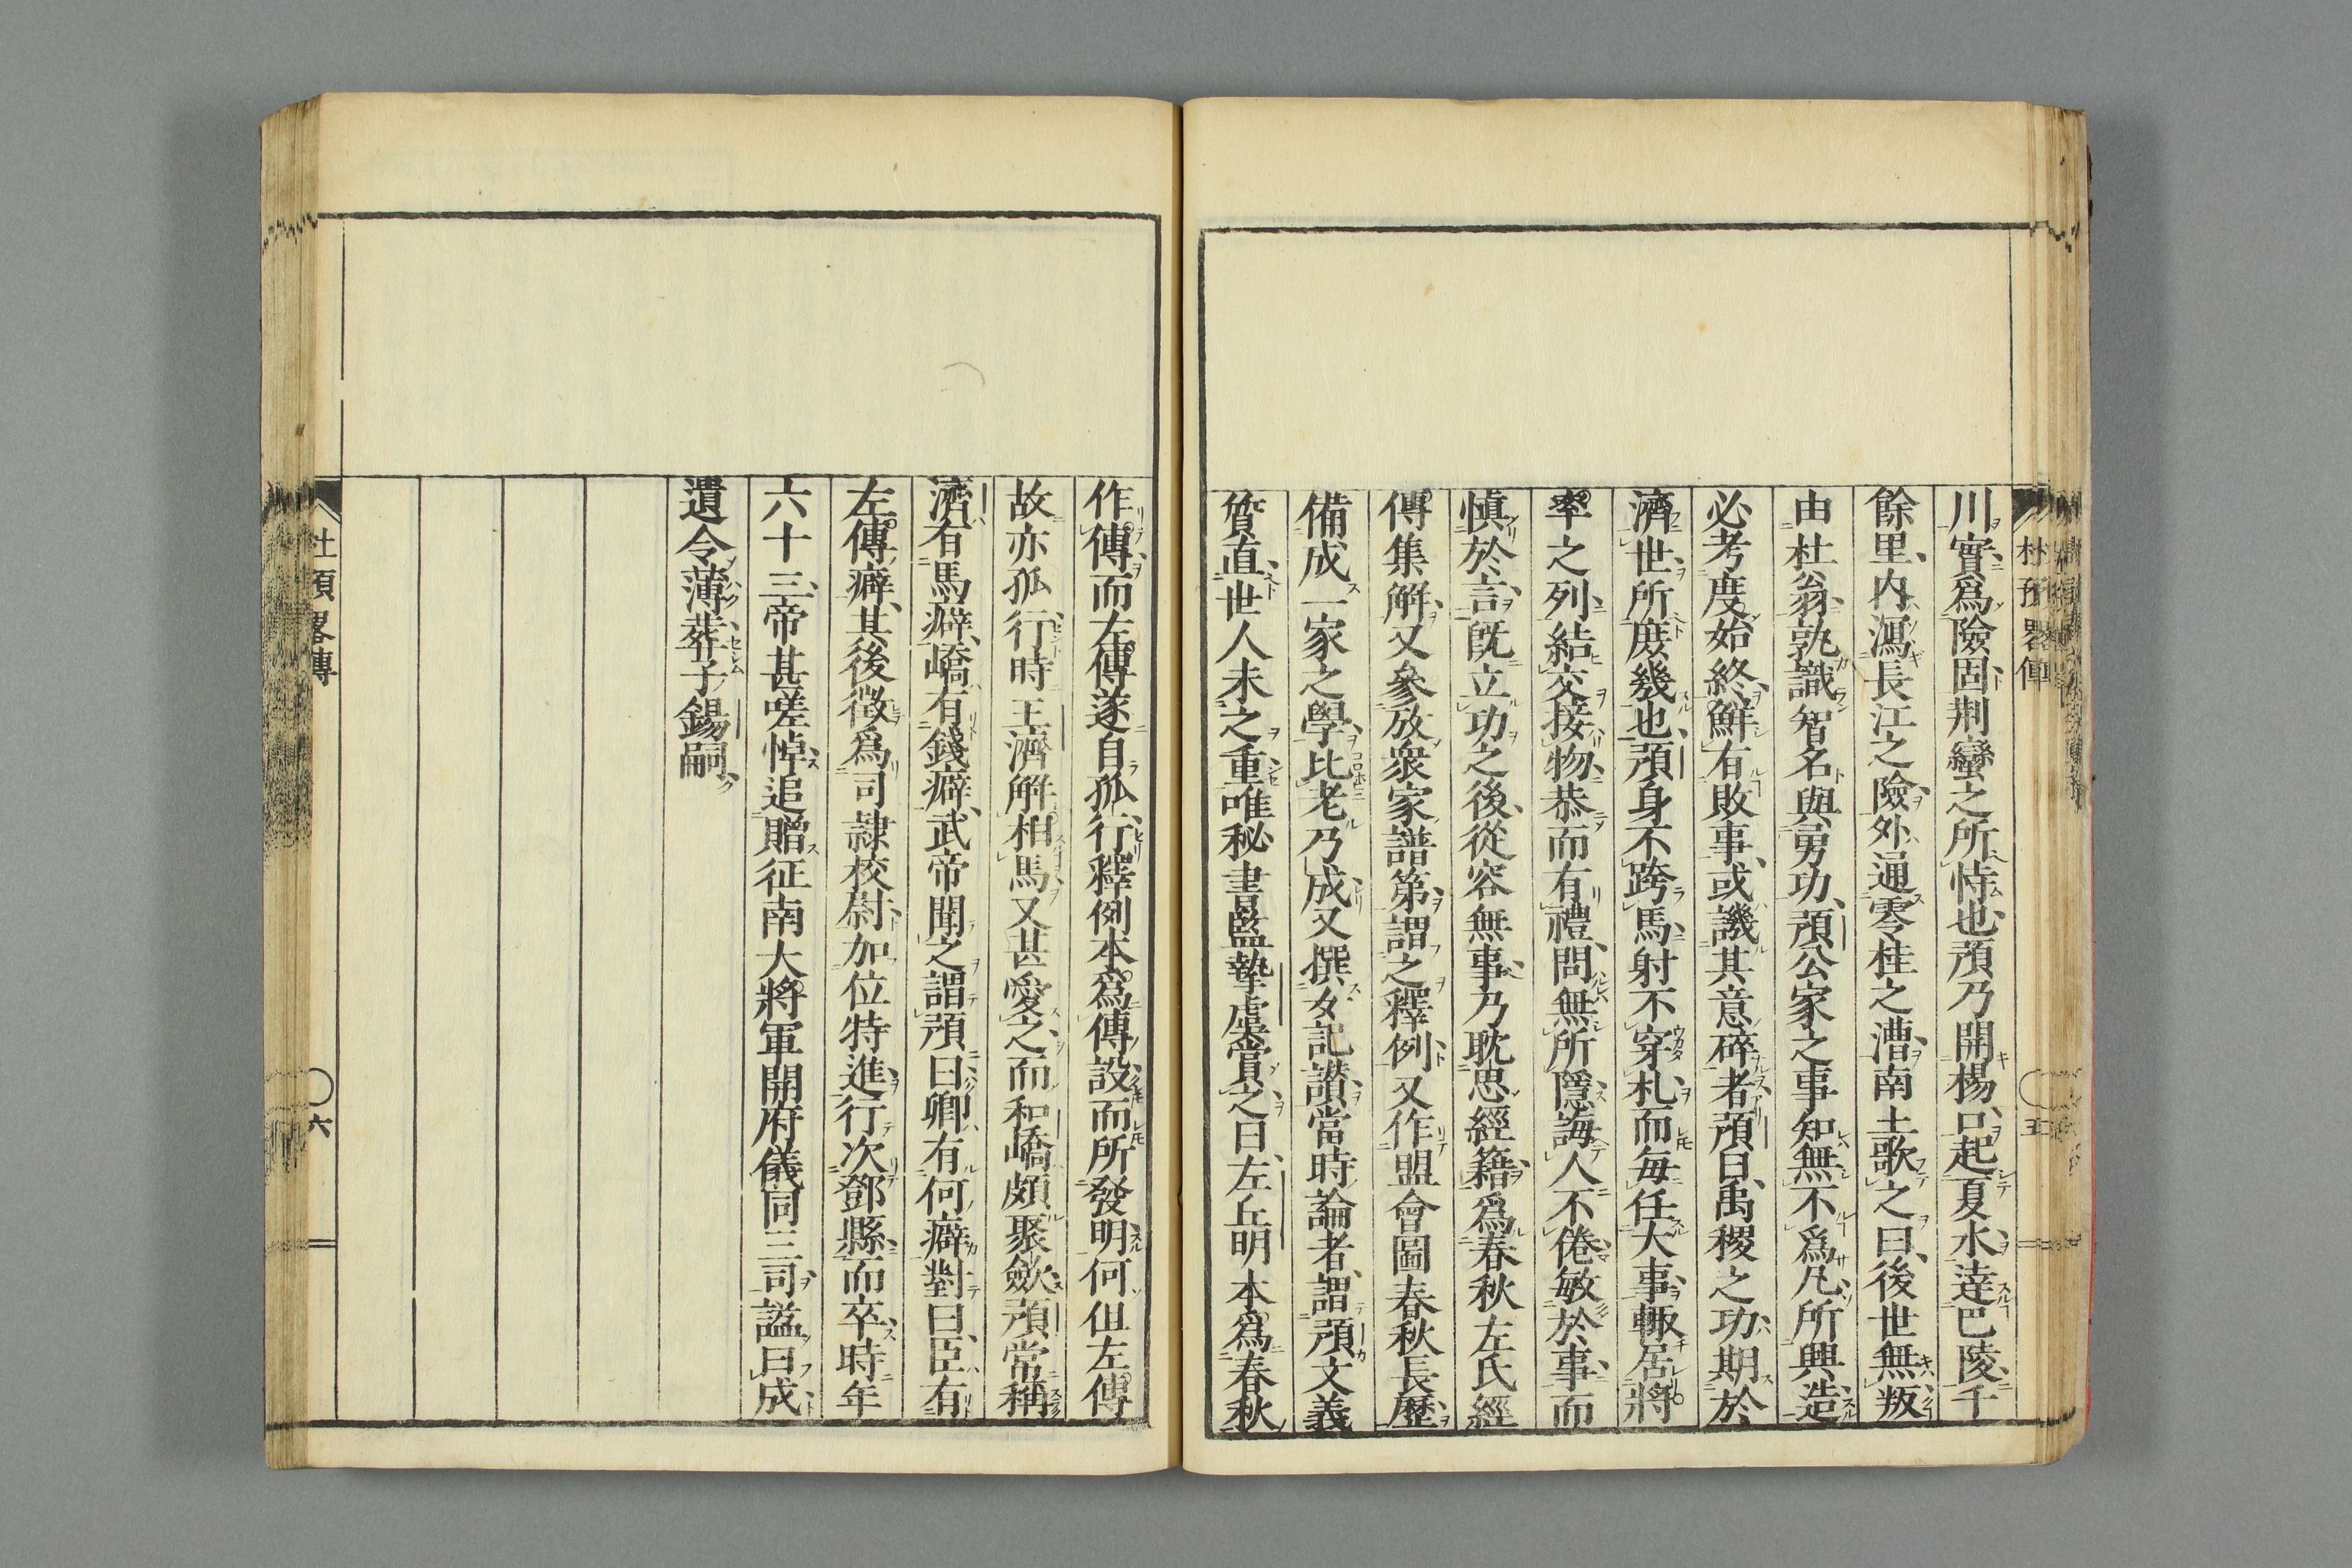 川實爲險固荆蠻之所恃也預乃開楊口起夏水達巴陵千
餘里內瀉長江之險外通零桂之漕南土歌之曰後世無叛
由杜翁孰識智名與勇功預公家之事知無不爲凡所興造
必考度始終鮮有敗事或譏其意碎者預曰禹稷之功期於
濟世所庶幾也預身不跨馬射不穿札而每任大事輒居將
率之列結交接物恭而有禮問無所隱誨人不倦敏於事而
愼於言旣立功之後從容無事乃耽思經籍爲春秋左氏經
傳集解又參放衆家譜第謂之釋例又作盟會圖春秋長歷
備成一家之學比老乃成又撰女記讃當時論者謂預文義
質直世人未之重唯秘書監摯虞賞之曰左丘明本爲春秋
作傳而左傳遂自孤行釋例本爲傳設而所發明何但左傳
故亦孤行時王濟解相馬又甚愛之而和嶠頗聚斂預常稱
濟有馬癖嶠有錢癖武帝聞之謂預曰卿有何癖對曰臣有
左傳癖其後徵爲司隷校尉加位特進行次鄧縣而卒時年
六十三帝甚嗟悼追贈征南大將軍開府儀同三司謚曰成
遺令薄葬子錫嗣
杜預畧傳
五
杜預畧傳
六